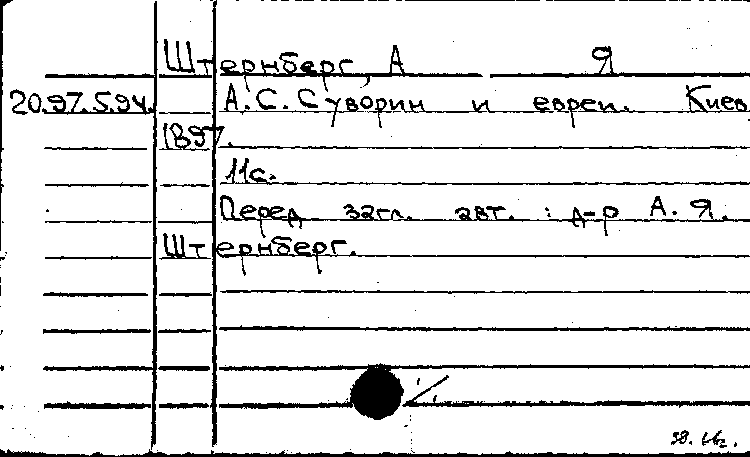 Штернберг, А Я
20.97.5.94. А.С.Суворин и евреи. Киев,
1897.
11с.
Перед загл. авт. : д-р А. Я.
Штернберг.